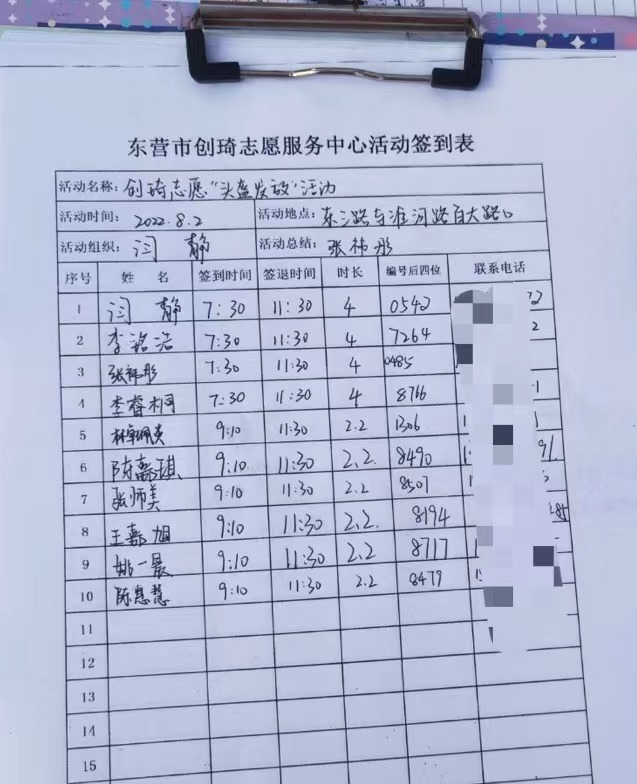 东营市创琦志愿服务中心活动签到表
活动名称: 创琦志愿“头盔发放”活动
活动时间: 2022.8.2 活动地点: 东三路与淮河路百大路口
活动组织: 闫 静 活动总结: 张祎彤
序号 姓 名 签到时间 签退时间 时长 编号后四位 联系电话
1 闫 静 7:30 11:30 4 0542
2 李铭浩 7:30 11:30 4 7264
3 张祎彤 7:30 11:30 4 0485
4 李睿桐 7:30 11:30 4 8766
5 9:10 11:30 2.2 1306
6 陈嘉琪 9:10. 11:30 2.2. 8490
7 张师美 9:10 11:30 2.2 8507
8 王嘉旭 9:10 11:30 2.2. 8194
9 姚一晨 9:10 11:30 2.2 8717
10 陈慧慧 9:10 11:30 2.2 8479
11
12
13
14
15